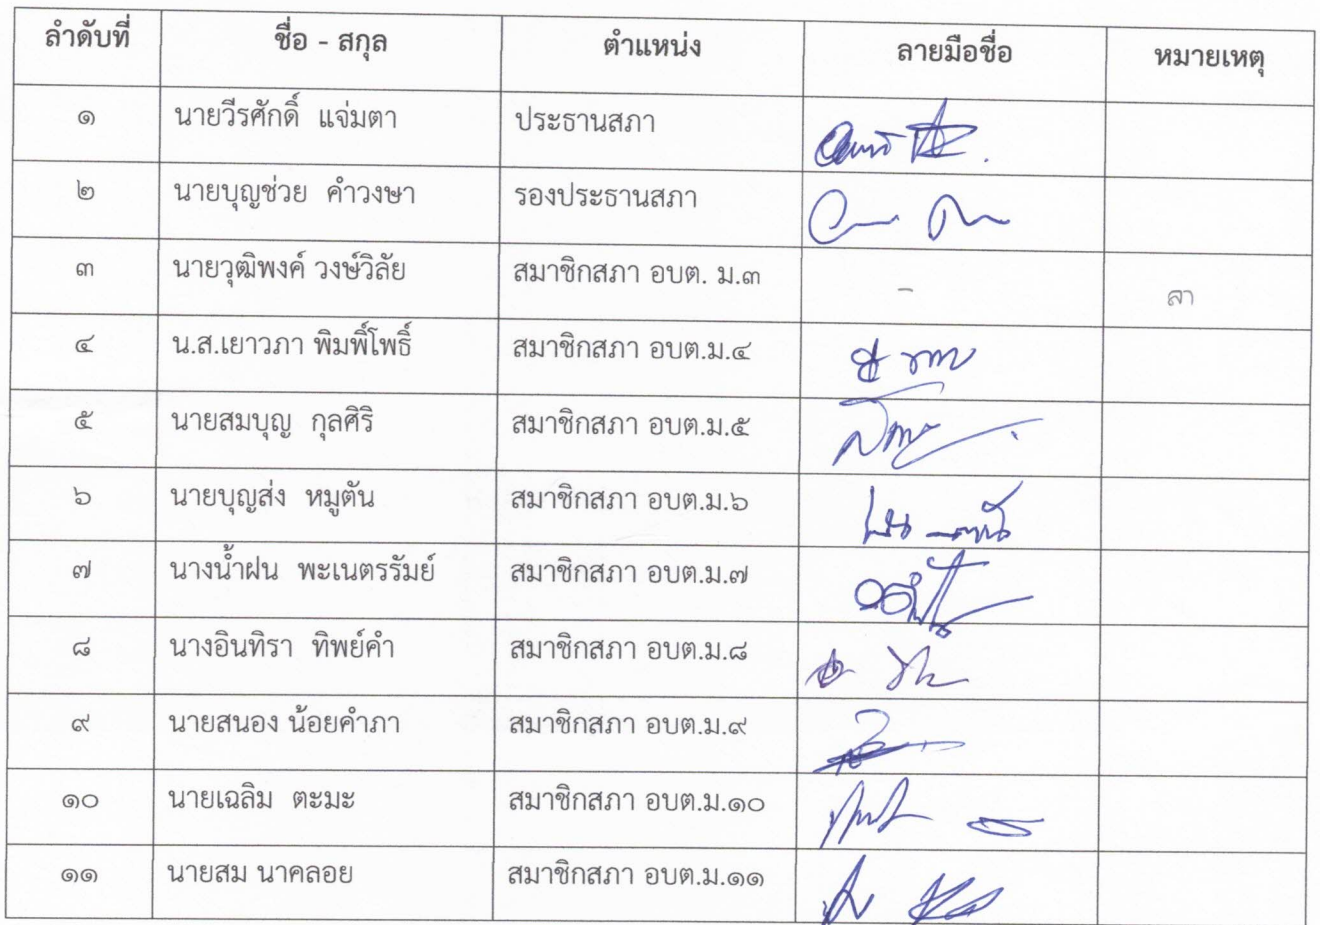 ลำดับที่ ชื่อ - สกุล ตำแหน่ง ลายมือชื่อ หมายเหตุ
๑ นายวีรศักดิ์ แจ่มตา ประธานสภา
๒ นายบุญช่วย คำวงษา รองประธานสภา
๓ นายวุฒิพงค์ วงษ์วิลัย สมาชิกสภา อบต. ม.๓ - ลา
๔ น.ส.เยาวภา พิมพิ์โพธิ์ สมาชิกสภา อบต.ม.๔
๕ นายสมบุญ กุลศิริ สมาชิกสภา อบต.ม.๕
๖ นายบุญส่ง หมูตัน สมาชิกสภา อบต.ม.๖
๗ นางน้ำฝน พะเนตรรัมย์ สมาชิกสภา อบต.ม.๗
๘ นางอินทิรา ทิพย์คำ สมาชิกสภา อบต.ม.๘
๙ นายสนอง น้อยคำภา สมาชิกสภา อบต.ม.๙
๑๐ นายเฉลิม ตะมะ สมาชิกสภา อบต.ม.๑๐
๑๑ นายสม นาคลอย สมาชิกสภา อบต.ม.๑๑